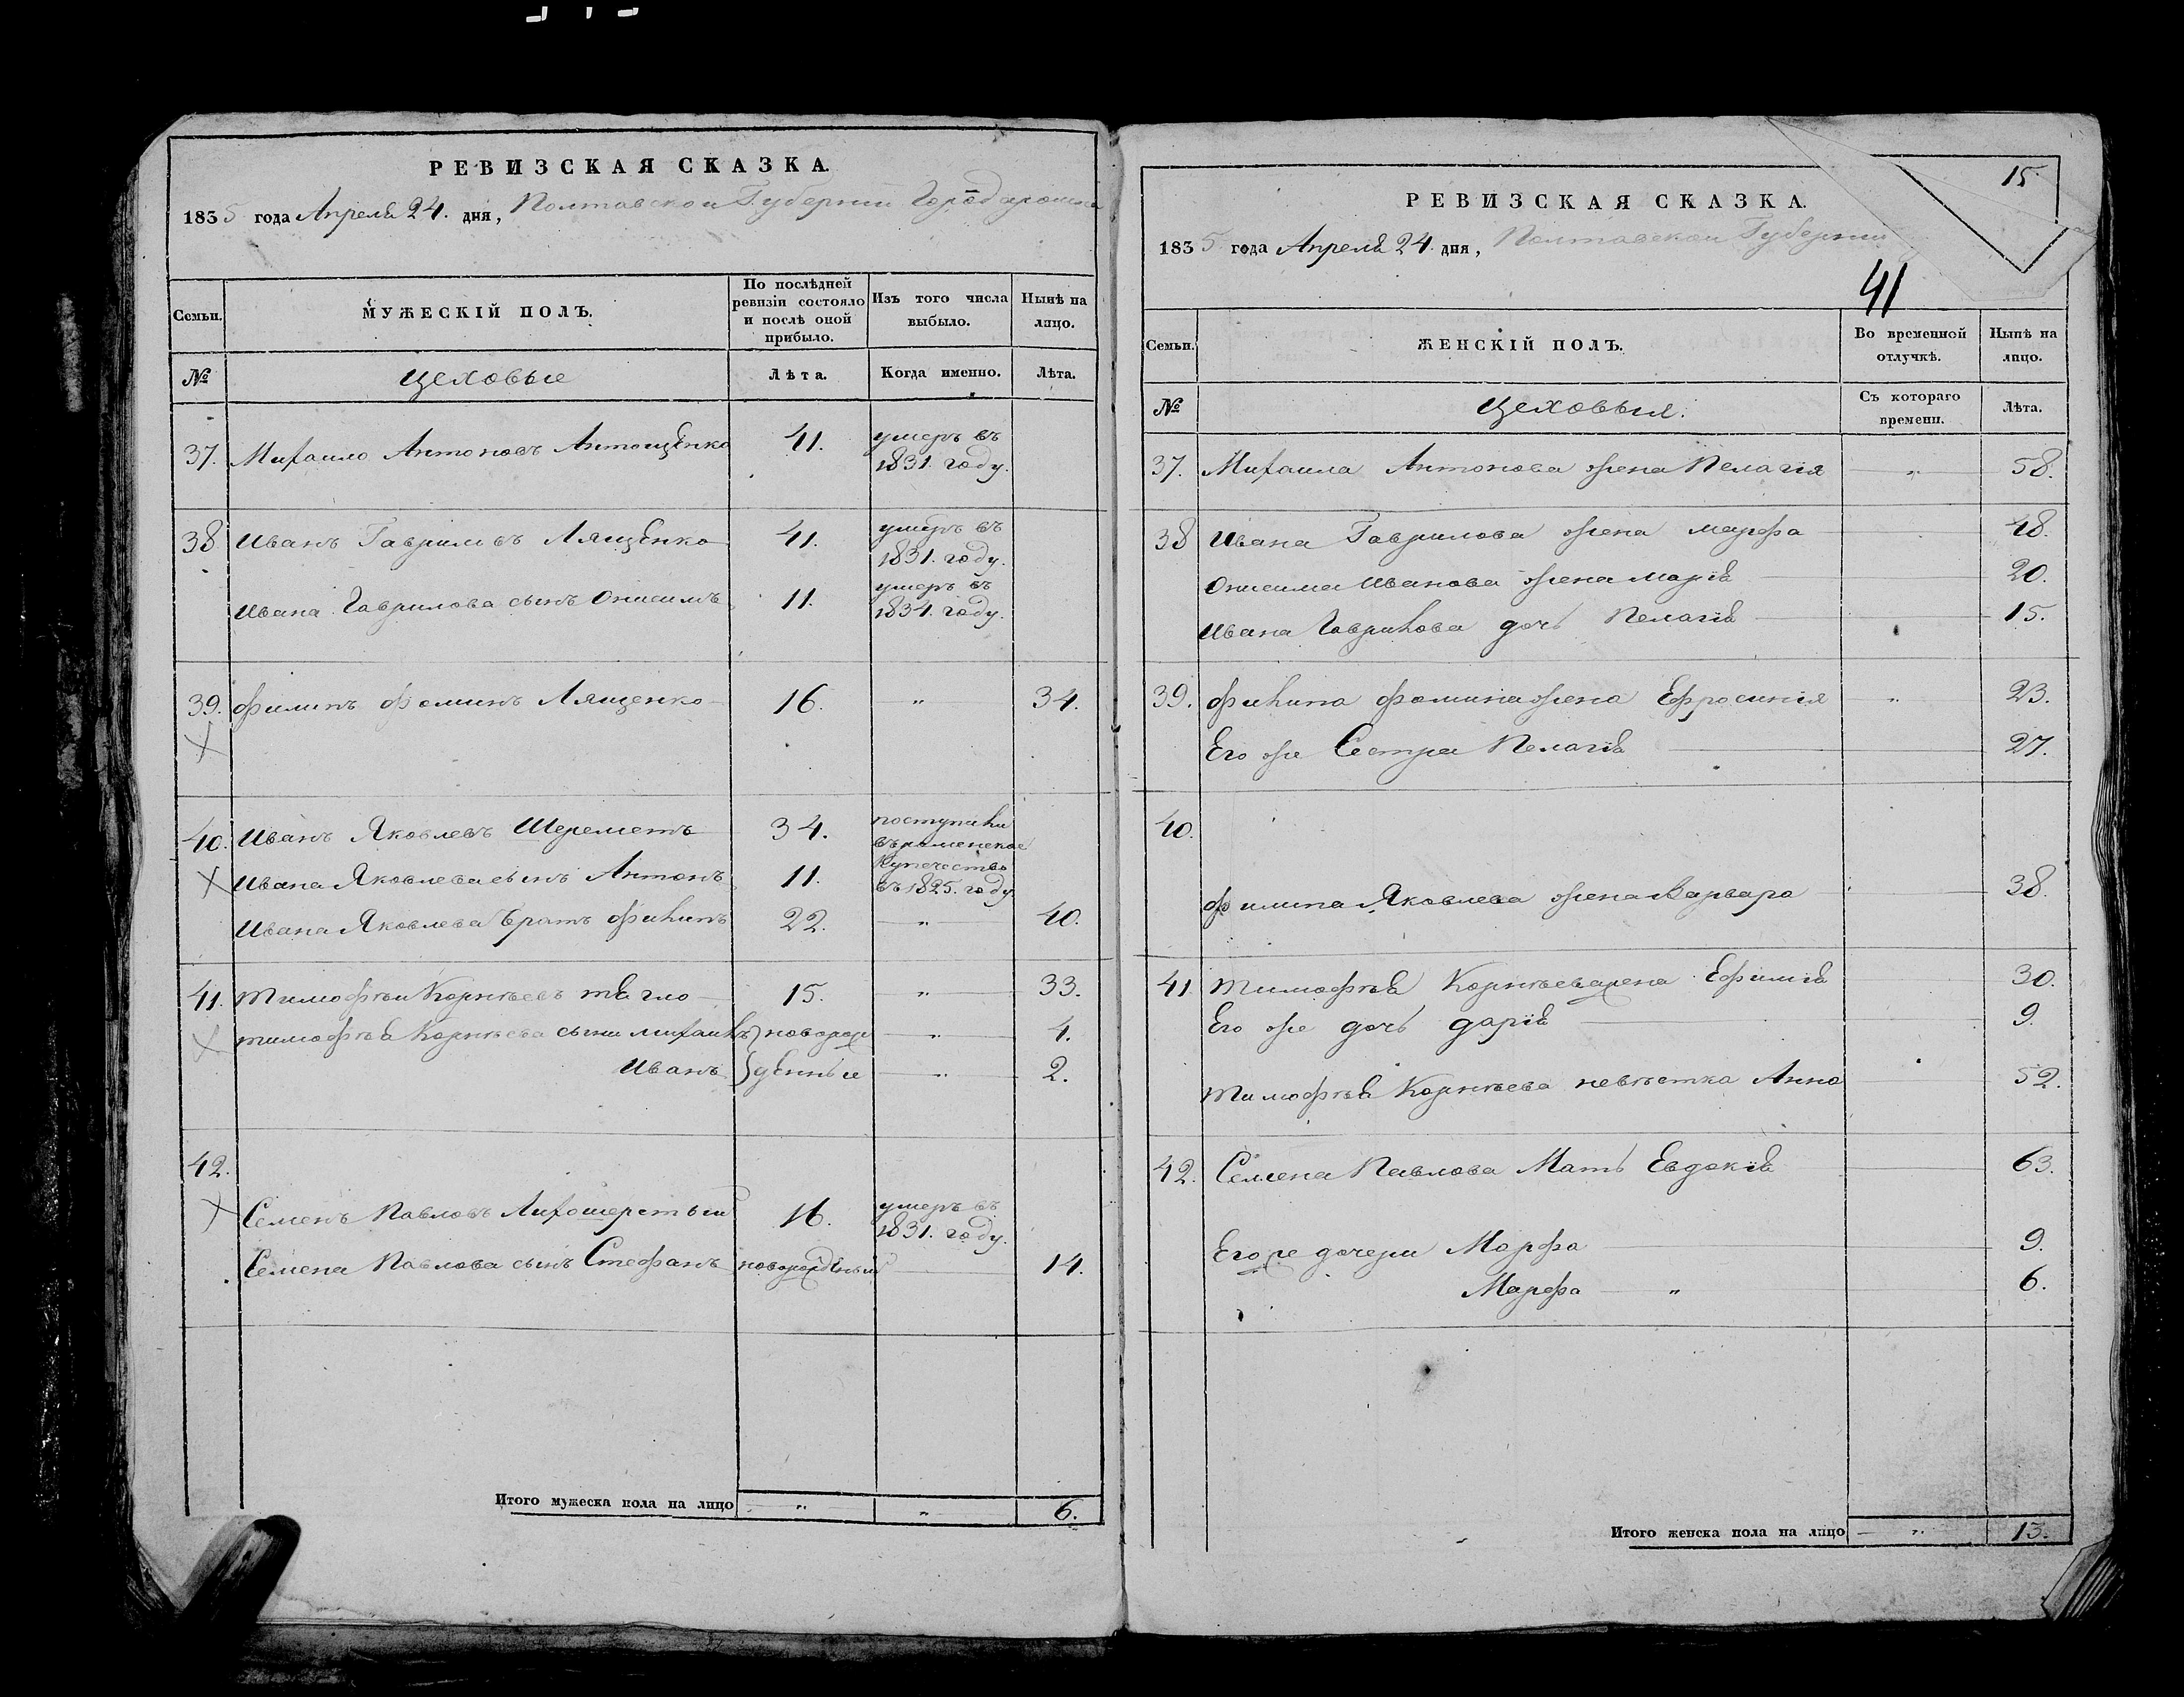 РЕВИЗСКАЯ СКАЗКА.
1835 года Апреля 24. дня, Полтавской Губернии Города
Семьи.
МУЖЕСКІЙ ПОЛЪ.
По послѣдней ревизіи состояло и послѣ оной прибыло.
Изъ того числа выбыло.
Нынѣ на лицо.
№
Цеховые
Лѣта.
Когда именно.
Лѣта.
37. Михаило Антоновъ Антощенко 41. умеръ въ
1831. году.
38 Иванъ Гавриловъ Лященко 41. умеръ въ
1831. году.
Ивана Гаврилова сынъ Онисимъ 11. умеръ въ
1834. году.
39. Филипъ Фоминъ Лященко 16. " 34.
40. Иванъ Яковлевъ Шереметъ 34. поступили
въ роменское
Ивана Яковлева сынъ Антонъ 11. купечество
въ 1825. году
Ивана Яковлева братъ Филипъ 22. " 40.
41. Тимофѣй Корнѣевъ Тягло 15. " 33.
Тимофѣя Корнѣева сыни Михаилъ } новорож " 4.
Иванъ } денные " 2.
42.
Семенъ Павловъ Лихошерстый 16. умеръ въ
1831. году.
Семена Павлова сынъ Стефанъ новорожденный 14.
Итого мужеска пола на лицо " " 6.
15
РЕВИЗСКАЯ СКАЗКА.
1835 года Апреля 24. дня, Полтавской Губернии
41
Семьи.
ЖЕНСКІЙ ПОЛЪ.
Во временной отлучкѣ.
Нынѣ на лицо.
№
Цеховыя.
Съ котораго времени.
Лѣта.
37. Михаила Антонова жена Пелагія " 58.
38 Ивана Гаврилова жена Марфа 48.
Онисима Иванова жена Марія 20.
Ивана Гаврилова дочь Пелагія 15.
39. Филипа Фомина жена Ефросинія " 23.
Его же Сестра Пелагія 27.
40.
Филипа Яковлева жена Варвара 38.
41 Тимофѣя Корнѣева жена Ефимія 30.
Его же дочь Дарія 9.
Тимофѣя Корнѣева невѣстка Анна 52.
42. Семена Павлова Мать Евдокія 63.
Его же дочери Марфа 9.
Марфа " 6.
Итого женска пола на лицо " 13.